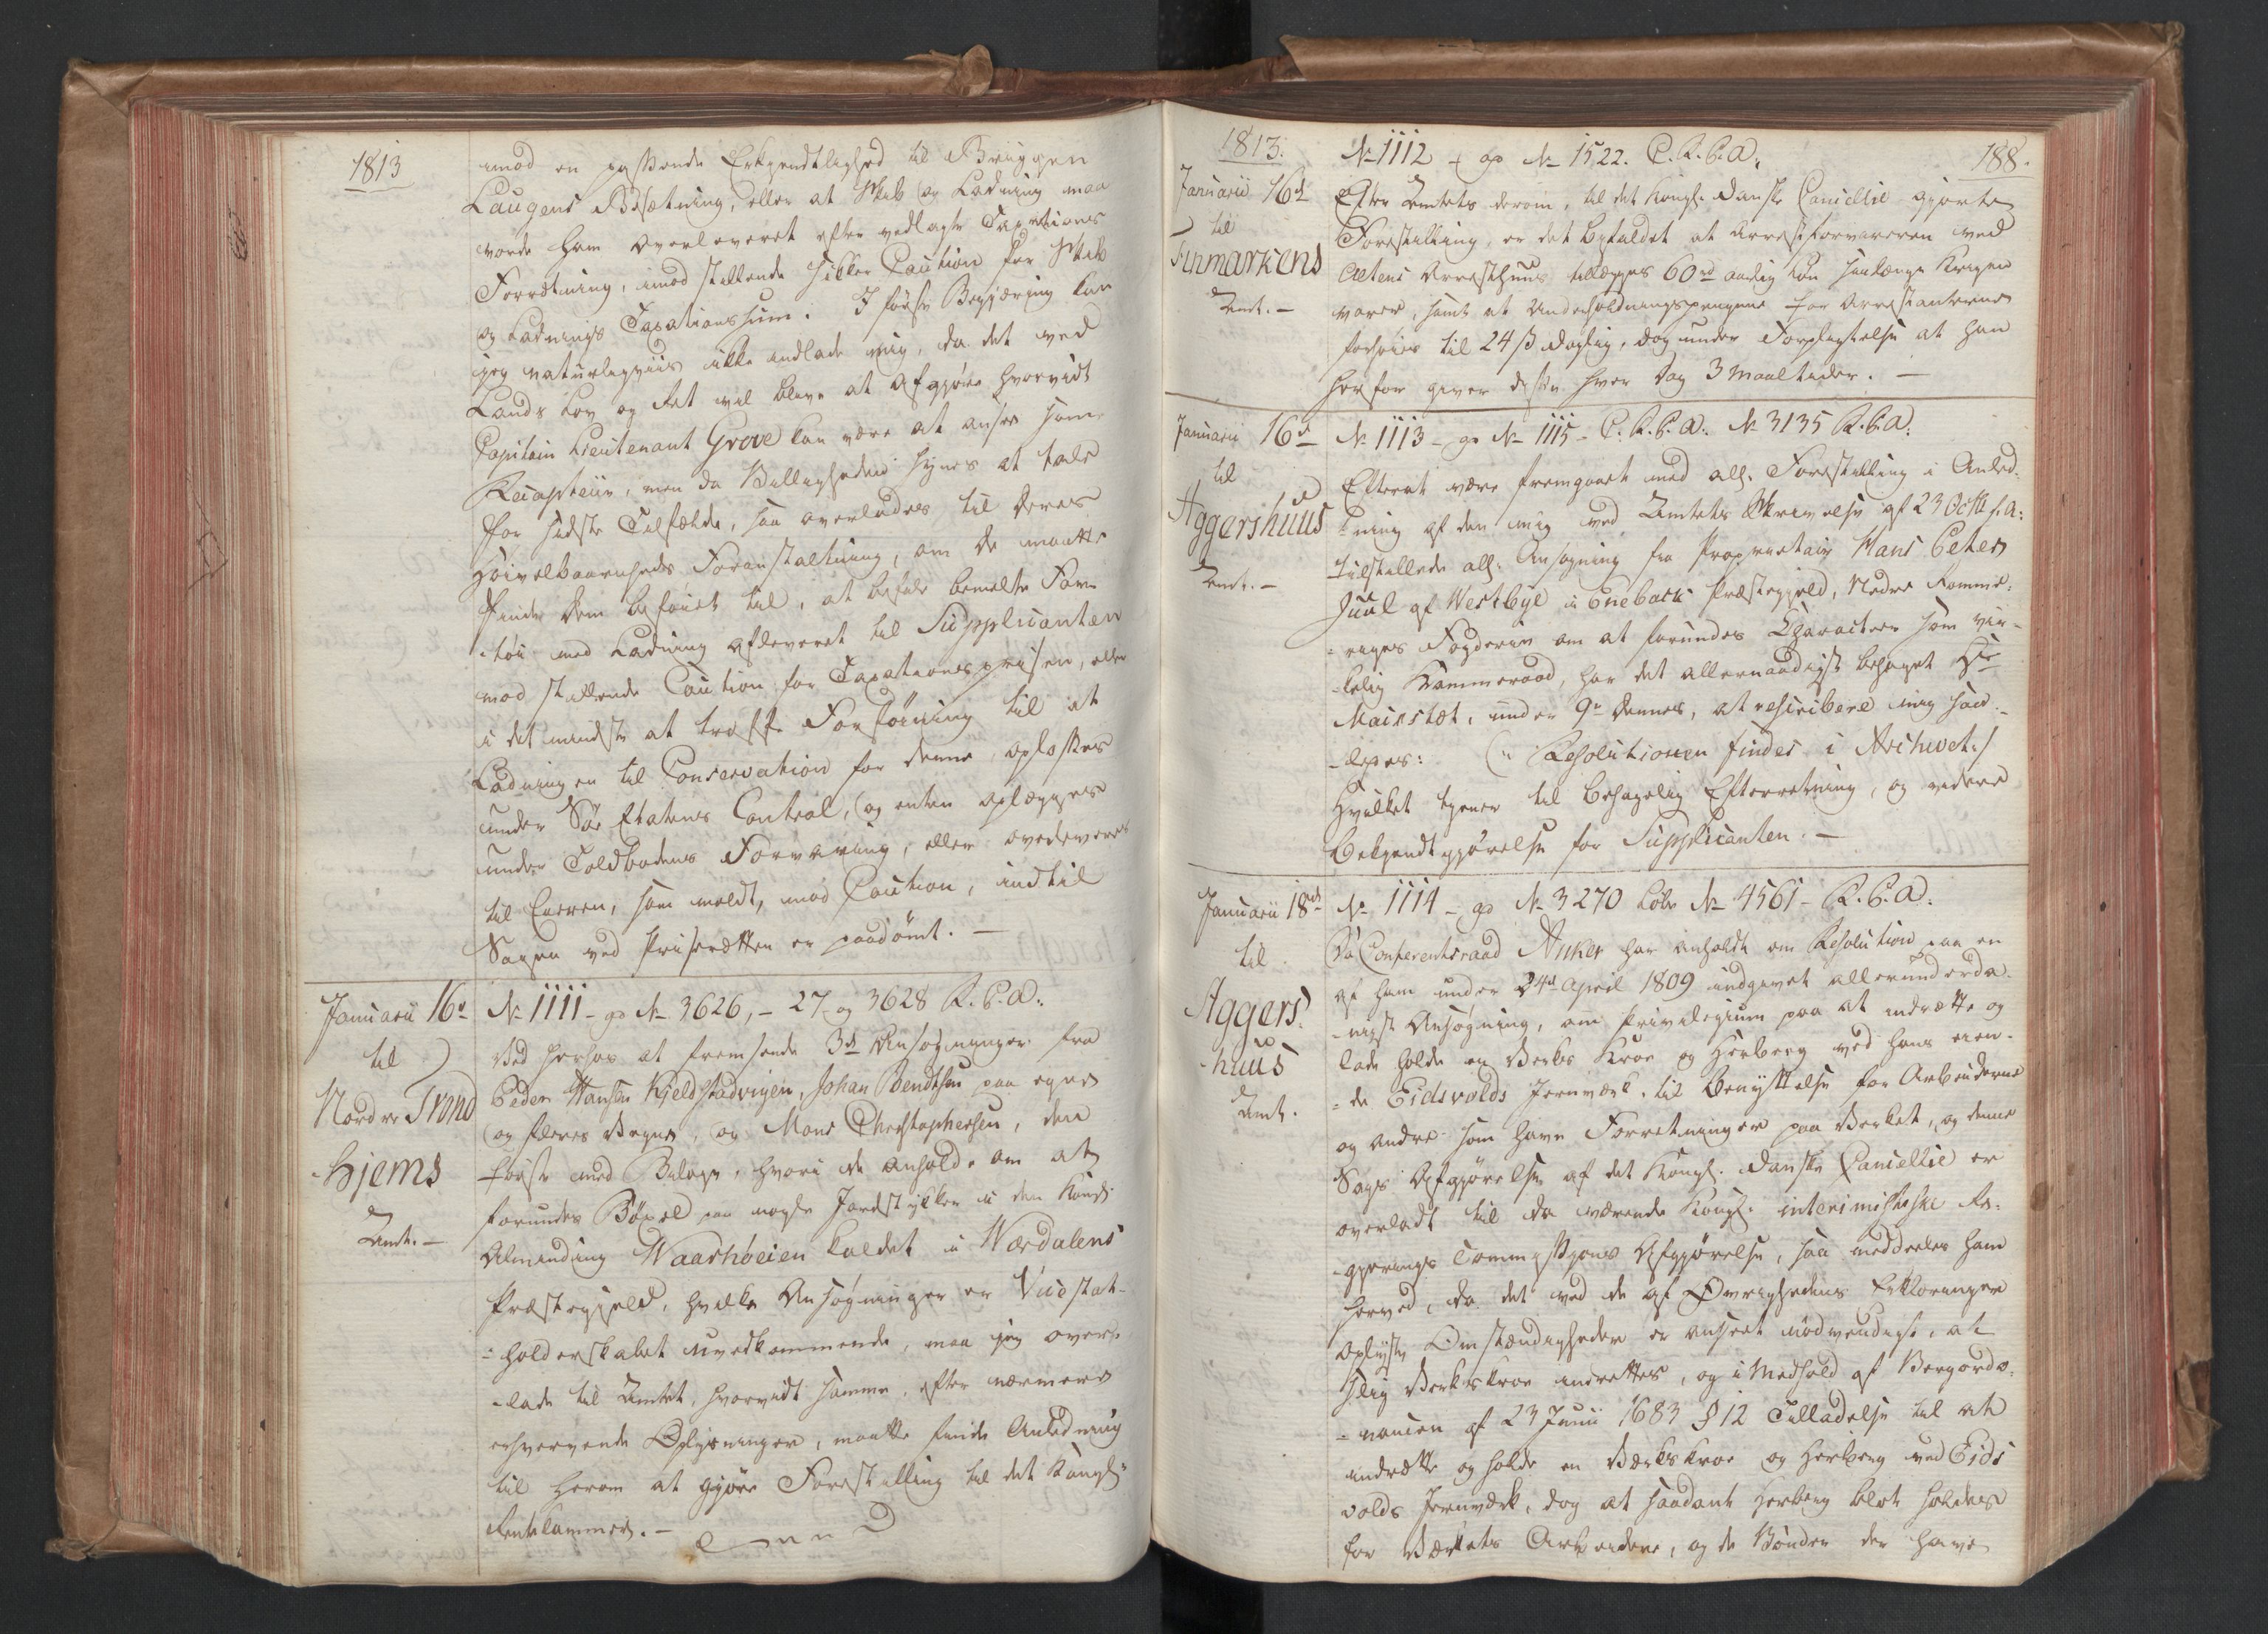 1813
imod en passende Erkjendtlighed til Briggen
Laugens Besætning, eller at Skib og Ladning maa
vorde ham overleveret efter vedlagte Taxations
Forretning, imod stillende sikker Caution for Skib
og Ladnings Taxationssum. I første Begjæring kan
jeg naturligviis ikke indlade mig, da det ved
Lands Lov og Ret vil blive at afgjøre hvorvidt
Capitain Lieutenant Grove kan være at ansee som
Recapteur, men da Billigheden synes at tale
for sidste Tilfælde, saa overlades til Deres
Høivelbaarenheds Foranstaltning, om De maatte
finde Dem beføiet til, at befale bemeldte Far-
tøi med Ladning afleveret til Supplicanten
mod stillende Caution for Taxationsprisen, eller
i det mindste at træffe Forføining til at
Ladningen til Conservation for denne, oplosses
under Søe Etatens Control, og enten oplægges
under Toldbodens Forvaring, eller overleveres
til Eieren, som meldt, mod Caution, indtil
Sagen ved Priseretten er paadømt. —
Januarii 16d
til
Nordre Trond
hjems
Amt. —
No 1111 - go No 3626, - 27 - og 3628 R. C. A:
Ved herhos at fremsende 3de Ansøgninger fra
Peder Hansen Kjeldstadvigen, Johan Bendtsen paa egne
og fleres Vegne, og Mons Christophersen, den
første med Bilage, hvori de anholde om at
forundes Bøxel paa nogle Jordstykker i den Kongl:
Alminding Waarhøeien kaldet i Wærdalens
Præstegjeld, hvilke Ansøgninger er Viicestat-
-holderskabet uvedkommende, maa jeg over-
-lade til Amtet, hvorvidt samme, efter nærmere
erhvervende Oplysninger, maatte finde Anledning
til herom at gjøre Forestilling til det Kongl:
Rentekammer. —
1813.
188.
Januarii 16d
til
Finmarkens
Amt. —
No 1112 - go No 1522. C. R. C. A.
Efter Amtets derom, til det Kongl. Danske Cancellie gjorte
Forestilling, er det befaldet at Arrestforvareren ved
Altens Arresthuus tillægges 60 rd aarlig Løn saalænge Krigen
varer, samt at Underholdningspengene for Arrestanterne
forhøies til 24 ß daglig, dog under Forpligtelse at han
herfor giver dem hver Dag 3 Maaltider. —
Januarii 16d
til
Aggershuus
Amt. —
No 1113 - go No 1115 - C. R. C. A: No 3135 R. C. A:
Efterat være fremgaaet med all. Forestilling i Anled-
-ning af den mig ved Amtets Skrivelse af 23 Octbr f. A:
tilstillede all: Ansøgning fra Proprietair Hans Peter
Juul af Westbye i Enebak Præstegjeld, Nedre Romme-
-riges Fogderie om at forundes Character som vir-
-kelig Kammeraad, har det allernaadigst behaget Hs
Maiestæt, under 9de dennes, at rescribere mig saa-
-ledes: (: Resolutionen findes i Archivet :)
Hvilket tjener til behagelig Efterretning, og videre
Bekjendtgjørelse for Supplicanten. —
Januarii 18d
til
Aggers
-huus
Amt.
No 1114 - go No 3270 Løbe No 4561 - R. C. A:
Da Conferentsraad Anker har anholdt om Resolution paa en
af ham under 24de April 1809 indgivet allerunderda-
-nigst Ansøgning, om Privilegium paa at indrette og
lade holde en Verks Kroe og Herberg ved hans eien-
-de Eidsvolds Jernværk, til Benyttelse for Arbeiderne
og andre som have Forretninger paa Verket, og denne
Sags Afgjørelse af det Kongl. Danske Cancellie er
overladt til da værende Kongl. interimistiske Re-
-gjerings Commissions Afgjørelse, saa meddeles ham
herved, da det ved de af Øvrighedens Erklæringer
oplyste Omstændigheder er anseet nødvendigt, at
slig Verkskroe indrettes, og i Medhold af Bergordo-
-nancen af 23 Junii 1683 § 12 Tilladelse til at
indrette og holde en Værkskroe og Herberg ved Eids
volds Jernværk, dog at saadant Herberg blot holdes
for Værkets Arbeidere, og de Bønder der have